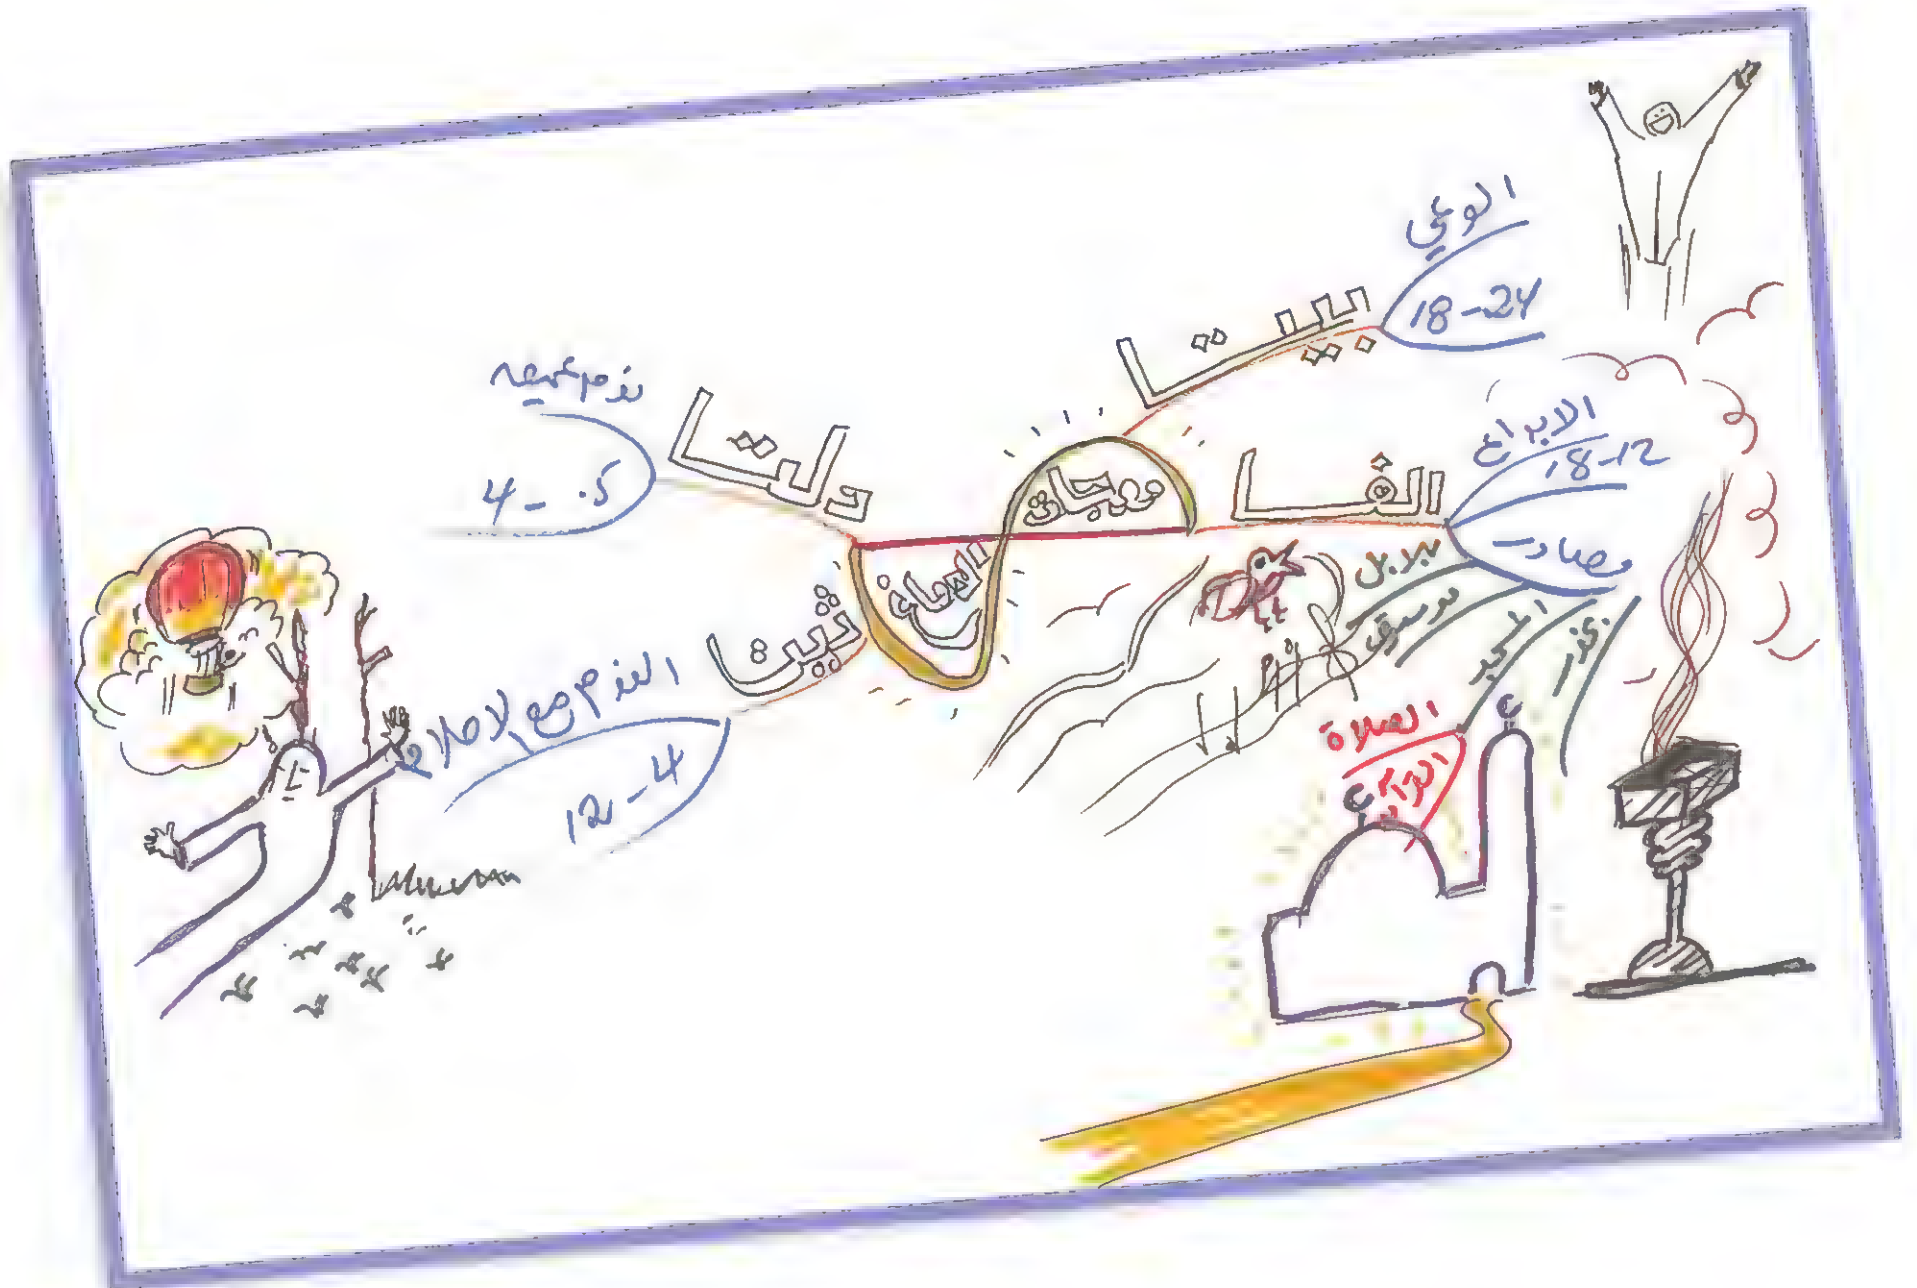 موجات
الدماغ
بيتا
الوعي
18-24
الفا
الابداع
18-12
مصادر
بلابل
موسيقى
المسجد
بخور
الصلاة
القرآن
دلتا
نوم عميق
4 - .5
ثيتا
النوم مع الاحلام
12-4